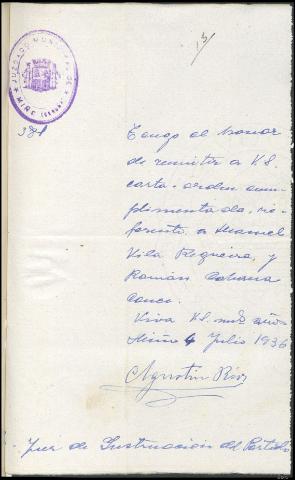 13
JUZGADO MUNICIPAL DE
MIÑO (CORUÑA)
381
Tengo el honor
de remitir a V.S.
carta-orden cum-
plimentada, re-
ferente a Manuel
Vila Regueira, y
Román
Viva V.S. años
Miño 4 Julio 1936
Agustín
Juez de Instrucción del Partido